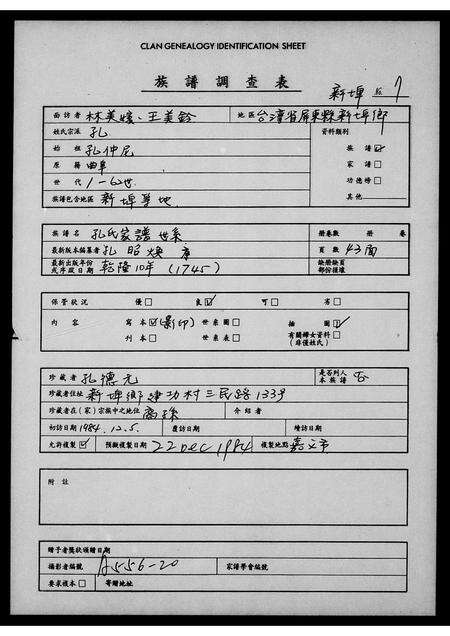 CLAN GENEALOGY IDENTIFICATION SHEET
族譜調查表
新埤 7
面訪者 林美媛、王美鈴 地區 台灣省屏東縣新埤鄉
姓氏宗派 孔 資料類別
始祖 孔仲尼 族譜☑
原籍 曲阜 家譜□
世代 1-62世 功德榜□
族譜包含地區 新埤等地 其他
族譜名 孔氏家譜世系 冊卷數 冊 卷
最新版本編纂者 孔昭煥 頁數 43面
最新出版年份或序跋日期 乾隆10年 (1745) 缺冊缺頁部份損壞
保管狀況 優□ 良☑ 可□ 劣□
內容 寫本☑(影印) 世系圖□ 插圖☑
刊本□ 世系表□ 有關婦女資料□(非僅姓氏)
珍藏者 孔德光 是否列入本族譜 否
珍藏者住址 新埤鄉建功村三民路133号
珍藏者在(家)宗族中之地位 裔孫 介紹者
初訪日期 1984.12.5. 覆訪日期 續訪日期
允許複製☑ 預擬複製日期 22 Dec 1984 複製地點 嘉义市
附註
贈予者獎狀頒贈日期
攝影者編號 A556-20 家譜學會編號
要求複本□ 寄贈地址